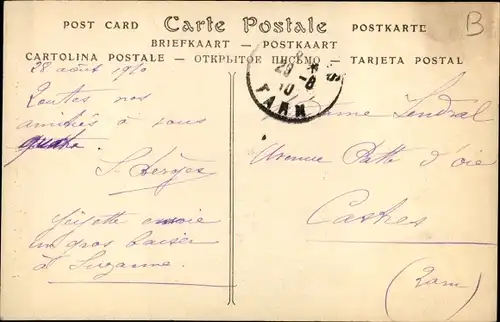 POST CARD Carte Postale POSTKARTE
BRIEFKAART — POSTKAART
CARTOLINA POSTALE — ОТКРЫТОЕ ПИСЬМО — TARJETA POSTAL
B
28 août 1910
Toutes nos
amitiés à vous
quatre.
Gigotte envoie
un gros baiser
à Suzanne.
29 - 8
10
TARN
Madame Sendral
Avenue Patte d'oie
Castres
(Tarn)